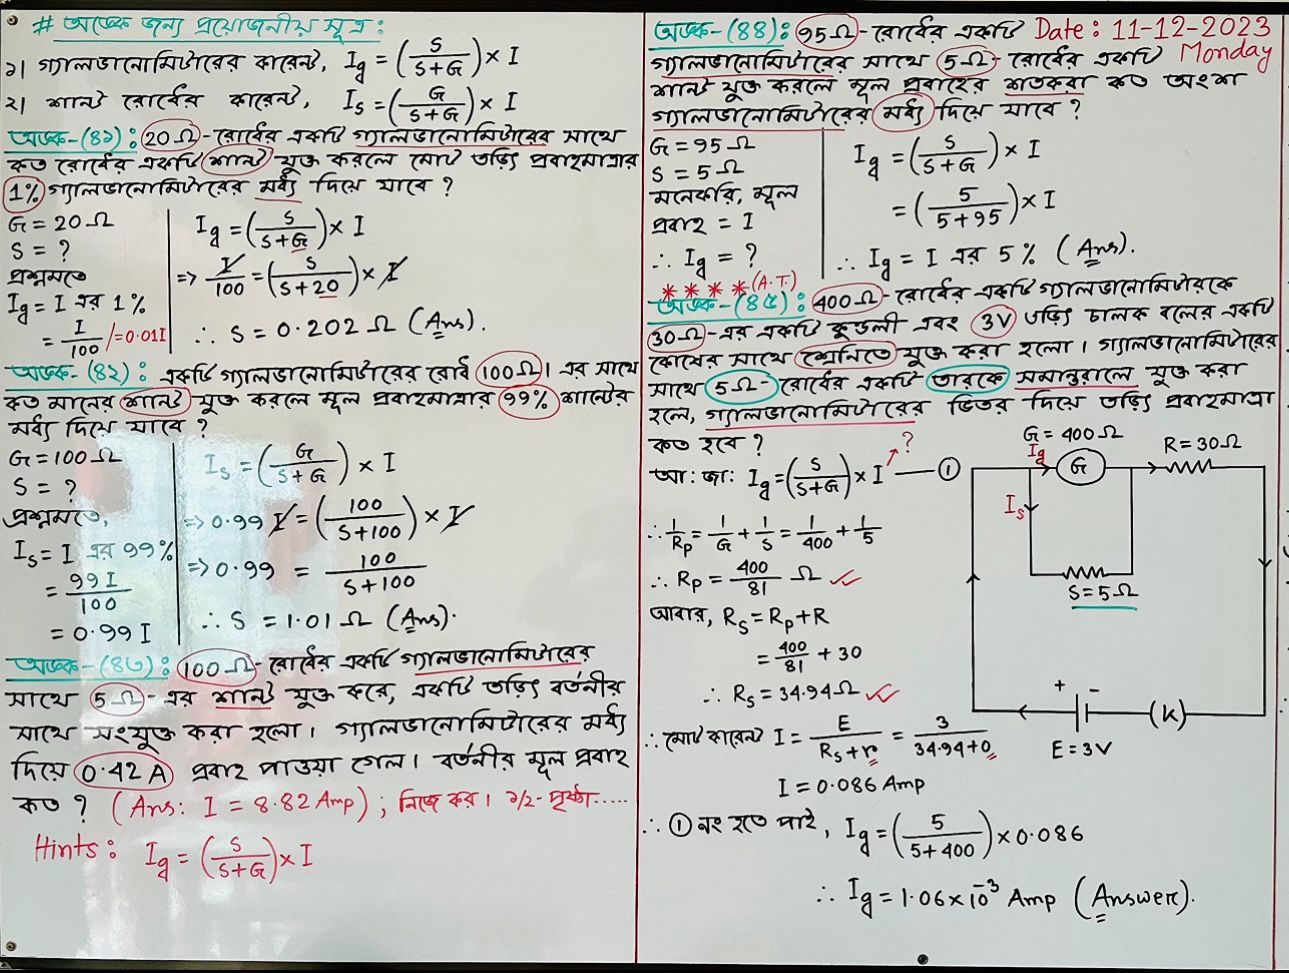 # অংকের জন্য প্রয়োজনীয় সূত্র:
১। গ্যালভানোমিটারের কারেন্ট, Ig = (S/(S+G)) × I
২। শান্ট রোধের কারেন্ট, Is = (G/(S+G)) × I
অংক-(৪১): 20Ω-রোধের একটি গ্যালভানোমিটারের সাথে
কত রোধের একটি শান্ট যুক্ত করলে মোট তড়িৎ প্রবাহমাত্রার
1% গ্যালভানোমিটারের মধ্য দিয়ে যাবে?
G = 20Ω
S = ?
প্রশ্নমতে
Ig = I এর 1%
= I/100 /=0.01I
Ig = (S/(S+G)) × I
=> I/100 = (S/(S+20)) × I
∴ S = 0.202Ω (Ans).
অংক-(৪২): একটি গ্যালভানোমিটারের রোধ 100Ω। এর সাথে
কত মানের শান্ট যুক্ত করলে মূল প্রবাহমাত্রার 99% শান্টের
মধ্য দিয়ে যাবে?
G = 100Ω
S = ?
প্রশ্নমতে,
Is = I এর 99%
= 99I/100
= 0.99I
Is = (G/(S+G)) × I
=> 0.99 I = (100/(S+100)) × I
=> 0.99 = 100/(S+100)
∴ S = 1.01Ω (Ans).
অংক-(৪৩): 100Ω-রোধের একটি গ্যালভানোমিটারের
সাথে 5Ω-এর শান্ট যুক্ত করে, একটি তড়িৎ বর্তনীর
সাথে সংযুক্ত করা হলো। গ্যালভানোমিটারের মধ্য
দিয়ে 0.42A প্রবাহ পাওয়া গেল। বর্তনীর মূল প্রবাহ
কত? (Ans: I = 8.82 Amp); নিজে কর। ১/২-পৃষ্ঠা.....
Hints: Ig = (S/(S+G)) × I
অংক-(৪৪): 95Ω-রোধের একটি Date: 11-12-2023
গ্যালভানোমিটারের সাথে 5Ω-রোধের একটি Monday
শান্ট যুক্ত করলে মূল প্রবাহের শতকরা কত অংশ
গ্যালভানোমিটারের মধ্য দিয়ে যাবে?
G = 95Ω
S = 5Ω
মনেকরি, মূল
প্রবাহ = I
∴ Ig = ?
Ig = (S/(S+G)) × I
= (5/(5+95)) × I
∴ Ig = I এর 5% (Ans).
* * * * (A.T.)
অংক-(৪৫): 400Ω-রোধের একটি গ্যালভানোমিটারকে
30Ω-এর একটি কুন্ডলী এবং 3V তড়িৎ চালক বলের একটি
কোষের সাথে শ্রেনিতে যুক্ত করা হলো। গ্যালভানোমিটারের
সাথে 5Ω-রোধের একটি তারকে সমান্তরালে যুক্ত করা
হলে, গ্যালভানোমিটারের ভিতর দিয়ে তড়িৎ প্রবাহমাত্রা
কত হবে?
আ: জা: Ig = (S/(S+G)) × I ? — ①
∴ 1/Rp = 1/G + 1/S = 1/400 + 1/5
∴ Rp = 400/81 Ω ✓
আবার, Rs = Rp + R
= 400/81 + 30
∴ Rs = 34.94Ω ✓
∴ মোট কারেন্ট I = E/(Rs+r) = 3/(34.94+0)
I = 0.086 Amp
∴ ① নং হতে পাই, Ig = (5/(5+400)) × 0.086
∴ Ig = 1.06×10⁻³ Amp (Answer).
G = 400Ω
Ig
G
R = 30Ω
Is
S = 5Ω
+ -
(K)
E = 3V